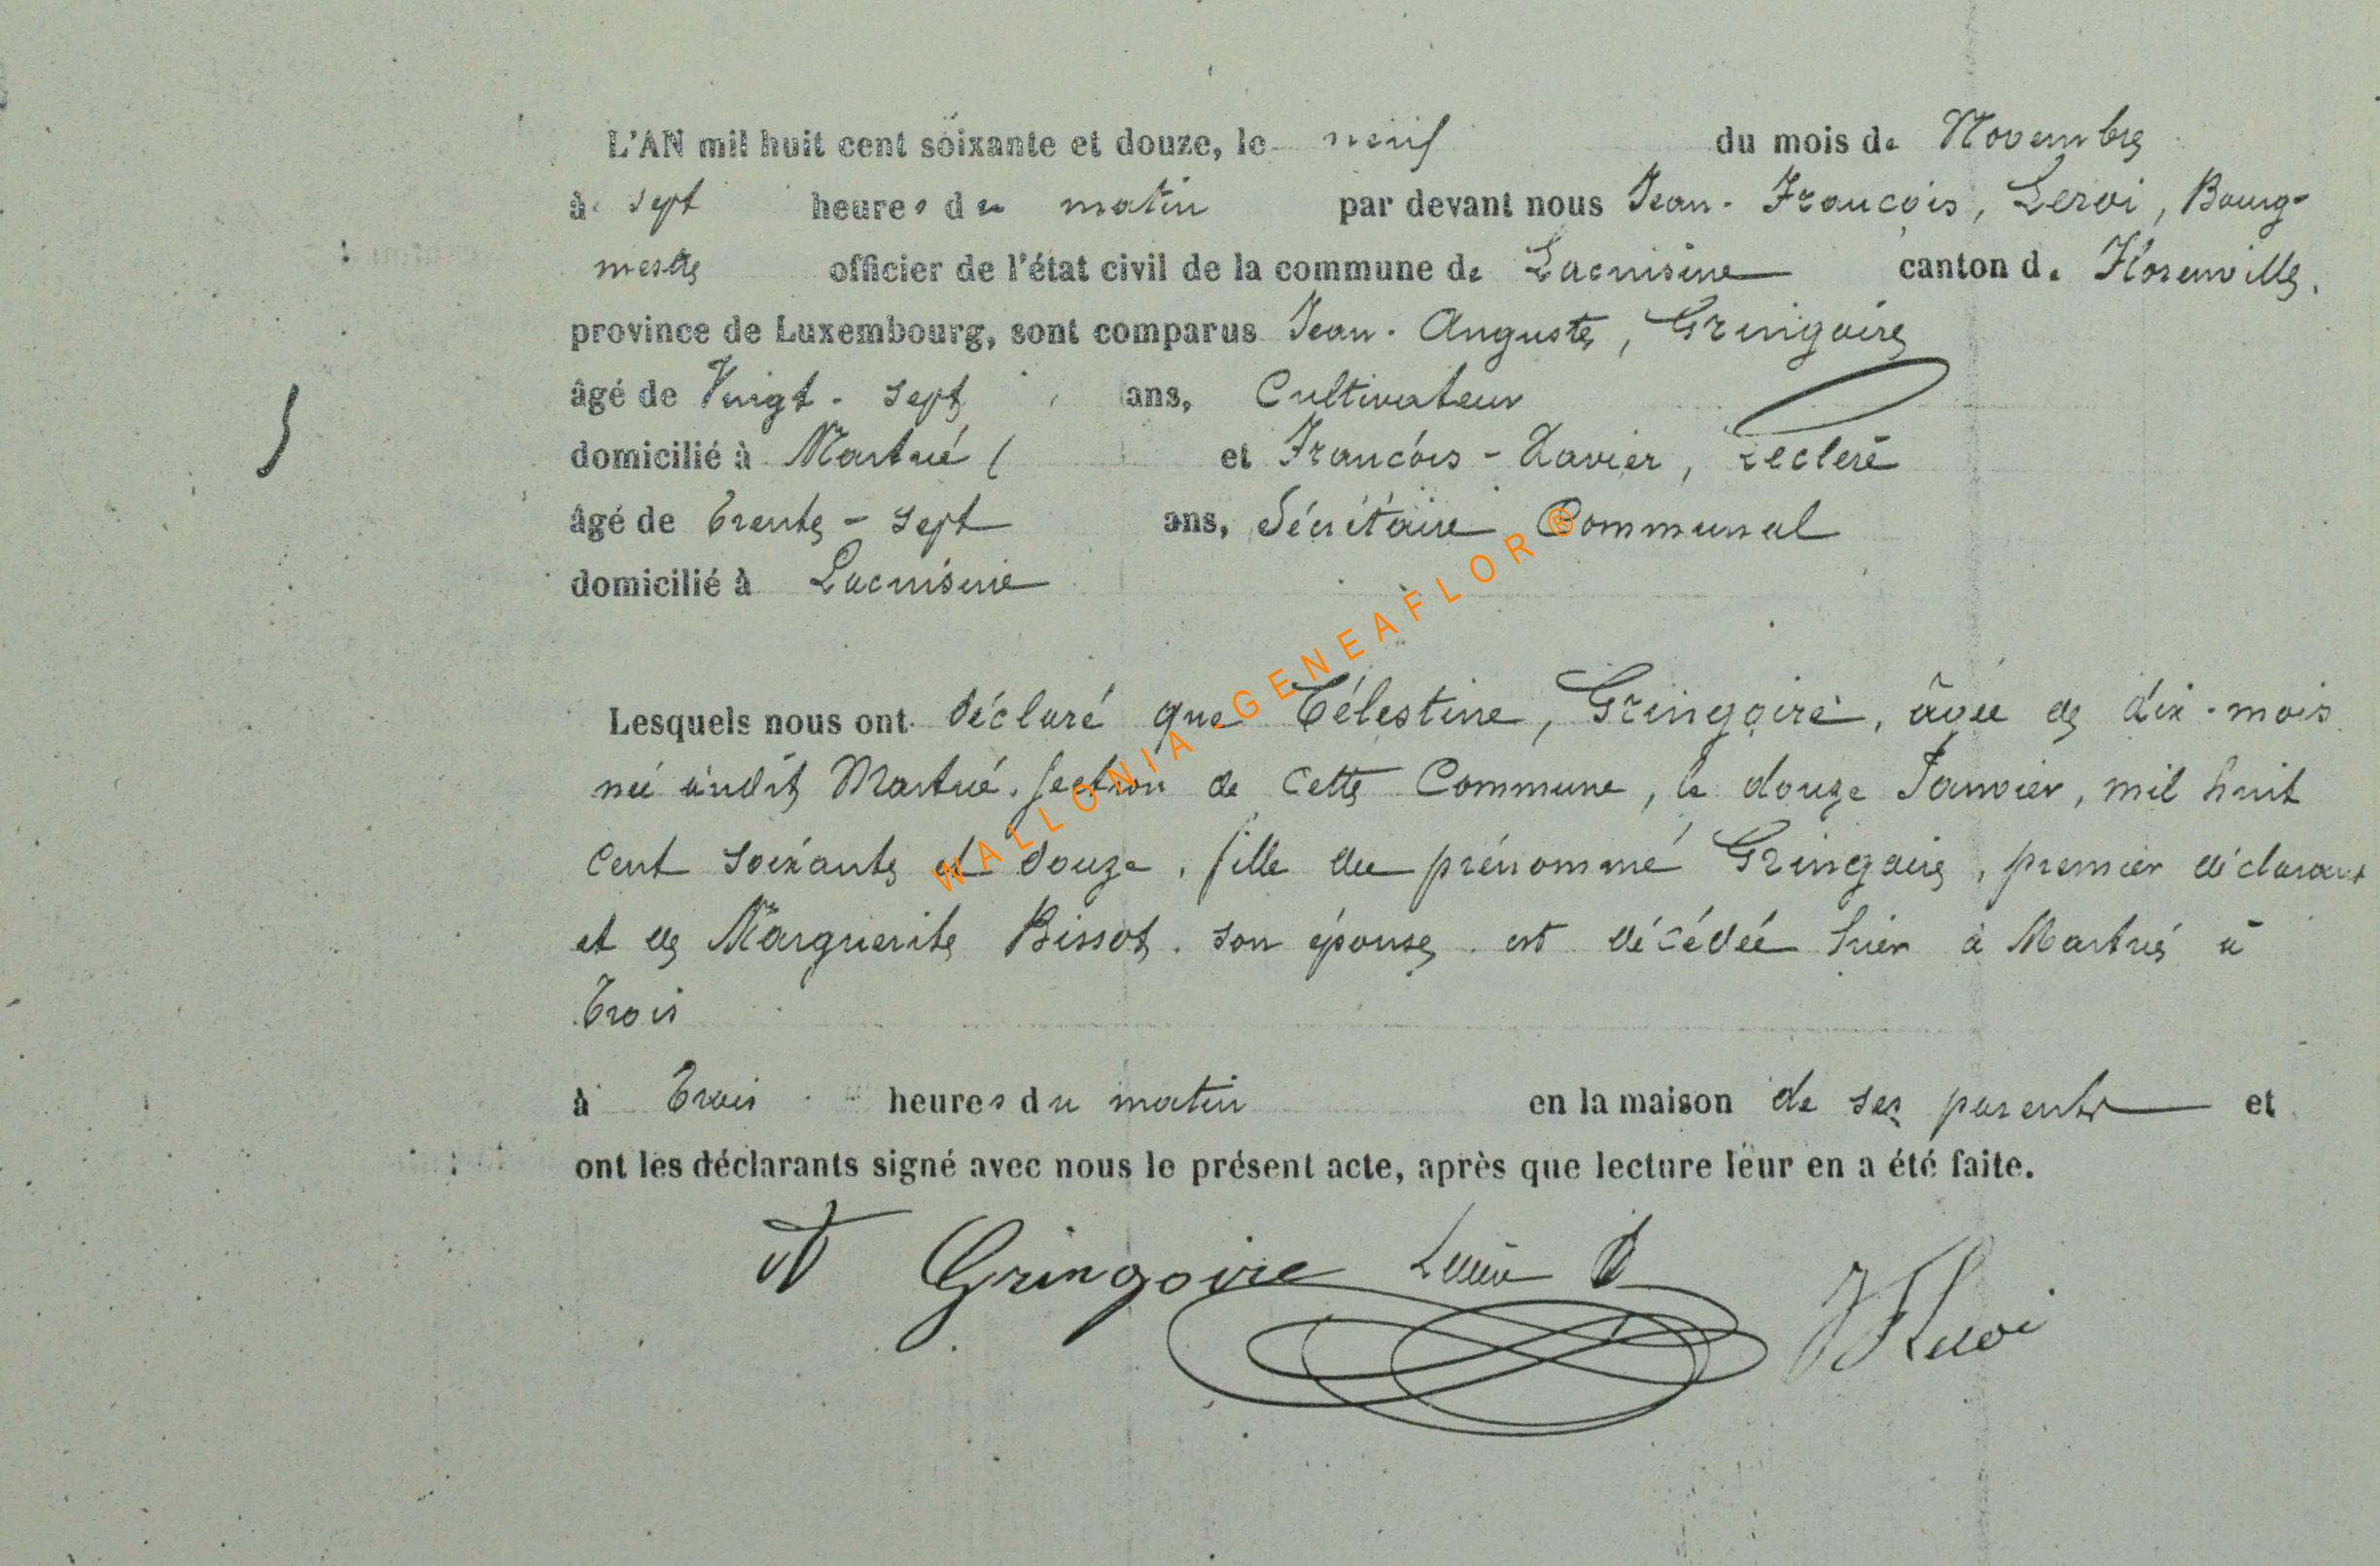 L'AN mil huit cent soixante et douze, le neuf du mois de Novembre
à sept heures du matin par devant nous Jean-François, Leroi, Bourg-
mestre officier de l'état civil de la commune de Lacuisine canton de Florenville,
province de Luxembourg, sont comparus Jean-Auguste, Gringoire
âgé de Vingt-sept ans, Cultivateur
domicilié à Martué et François-Xavier, Leclere
âgé de trente-sept ans, Sécrétaire Communal
domicilié à Lacuisine
Lesquels nous ont déclaré que Célestine, Gringoire, âgée de dix-mois
née audit Martué, section de cette Commune, le douze Janvier, mil huit
cent soixante et douze, fille du prénommé Gringoire, premier déclarant
et de Marguerite Bissot, son épouse, est décédée hier à Martué à
trois
à trois heures du matin en la maison de ses parents et
ont les déclarants signé avec nous le présent acte, après que lecture leur en a été faite.
A Gringoire JF Leroi
WALLONIA-GENEAFLOR ®